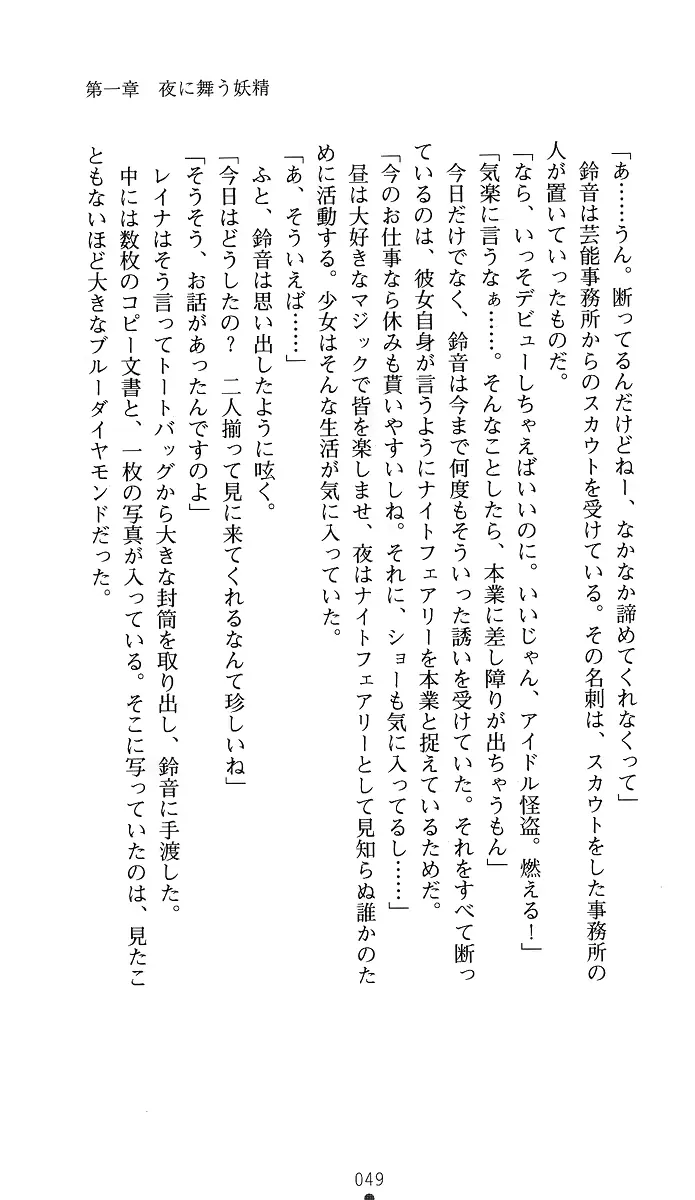 第一章　夜に舞う妖精
「あ……うん。断ってるんだけどねー、なかなか諦めてくれなくって」
　鈴音は芸能事務所からのスカウトを受けている。その名刺は、スカウトをした事務所の
人が置いていったものだ。
「なら、いっそデビューしちゃえばいいのに。いいじゃん、アイドル怪盗。燃える！」
「気楽に言うなぁ……。そんなことしたら、本業に差し障りが出ちゃうもん」
　今日だけでなく、鈴音は今まで何度もそういった誘いを受けていた。それをすべて断っ
ているのは、彼女自身が言うようにナイトフェアリーを本業と捉えているためだ。
「今のお仕事なら休みも貰いやすいしね。それに、ショーも気に入ってるし……」
　昼は大好きなマジックで皆を楽しませ、夜はナイトフェアリーとして見知らぬ誰かのた
めに活動する。少女はそんな生活が気に入っていた。
「あ、そういえば……」
　ふと、鈴音は思い出したように呟く。
「今日はどうしたの？　二人揃って見に来てくれるなんて珍しいね」
「そうそう、お話があったんですのよ」
　レイナはそう言ってトートバッグから大きな封筒を取り出し、鈴音に手渡した。
　中には数枚のコピー文書と、一枚の写真が入っている。そこに写っていたのは、見たこ
ともないほど大きなブルーダイヤモンドだった。
049